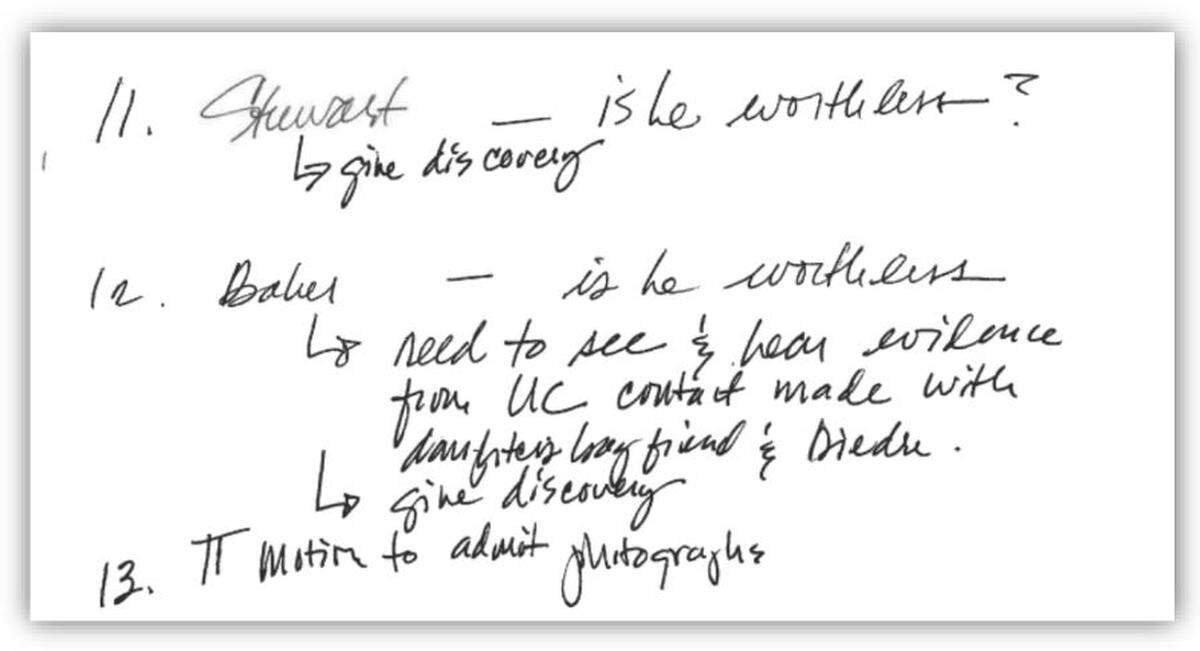 11. Stewart — is he worthless?
↳ give discovery
12. Baker — is he worthless
↳ need to see & hear evidence
from UC contact made with
daughters boyfriend & Diedre.
↳ give discovery
13. π motion to admit photographs